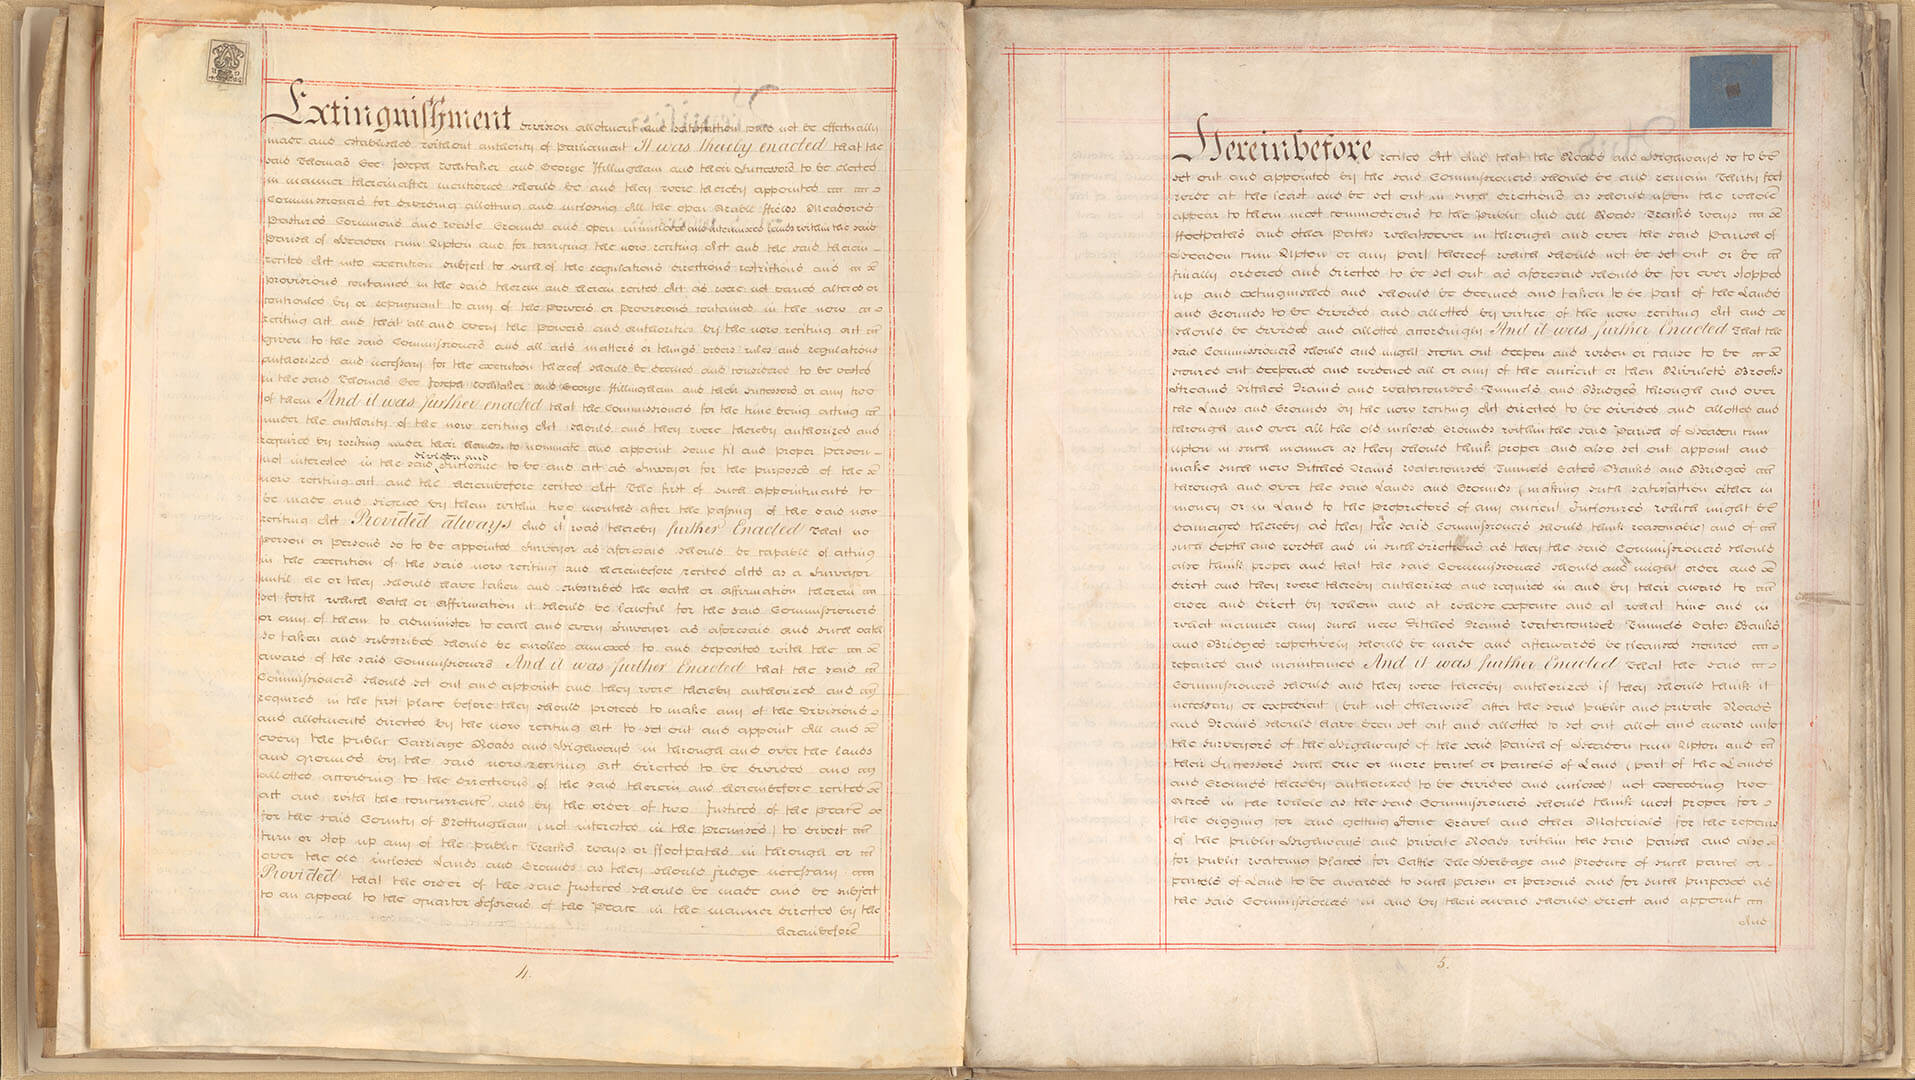 Extinguishment division allotment and satisfaction could not be effectually
made and established without authority of Parliament It was thereby enacted that the
said Thomas Gee Joseph Whitaker and George ffillingham and their Successors to be elected
in manner thereinafter mentioned should be and they were thereby appointed
Commissioners for dividing allotting and inclosing All the open Arable ffields Meadows
Pastures Commons and Waste Grounds and open uninclosed and intermixed lands within the said
Parish of Headon cum Upton and for carrying the now reciting Act and the said therein
recited Act into execution subject to such of the regulations directions restrictions and
provisions contained in the said therein and herein recited Act as were not varied altered or
controuled by or repugnant to any of the Powers or Provisions contained in the now
reciting Act and that all and every the powers and authorities by the now reciting Act
given to the said Commissioners and all acts matters or things orders rules and regulations
authorized and necessary for the execution thereof should be deemed and considered to be vested
in the said Thomas Gee Joseph Whitaker and George ffillingham and their Successors or any two
of them And it was further enacted that the Commissioners for the time being acting
under the authority of the now reciting Act should and they were thereby authorized and
required by writing under their hands to nominate and appoint some fit and proper Person
not interested in the said division and Inclosure to be and act as Surveyor for the purposes of the
now reciting Act and the hereinbefore recited Act The first of such appointments to
be made and signed by them within two months after the passing of the said now
reciting Act Provided always And it was thereby further Enacted That no
person or persons so to be appointed Surveyor as aforesaid should be capable of acting
in the execution of the said now reciting and hereinbefore recited Acts as a Surveyor
until he or they should have taken and subscribed the Oath or Affirmation therein
set forth which Oath or Affirmation it should be lawful for the said Commissioners
or any of them to administer to each and every Surveyor as aforesaid and such oath
so taken and subscribed should be enrolled annexed to and deposited with the
award of the said Commissioners And it was further Enacted that the said
Commissioners should set out and appoint and they were thereby authorized and
required in the first place before they should proceed to make any of the Divisions
and allotments directed by the now reciting Act to set out and appoint All and
every the public Carriage Roads and Highways in through and over the lands
and grounds by the said now reciting Act directed to be divided and
allotted according to the directions of the said therein and hereinbefore recited
act and with the concurrence and by the order of two Justices of the Peace
for the said County of Nottingham (not interested in the Premises) to divert
turn or stop up any of the public Tracks ways or ffootpaths in through or
over the old inclosed Lands and Grounds as they should judge necessary
Provided that the order of the said Justices should be made and be subject
to an appeal to the Quarter Sessions of the Peace in the manner directed by the
hereinbefore
4.
Hereinbefore recited Act And that the Roads and Highways so to be
set out and appointed by the said Commissioners should be and remain Thirty feet
wide at the least and be set out in such directions as should upon the whole
appear to them most commodious to the Public And all Roads Tracks ways
ffootpaths and other Paths whatsoever in through and over the said Parish of
Headon cum Upton or any part thereof which should not be set out or be
finally ordered and directed to be set out as aforesaid should be for ever stopped
up and extinguished and should be deemed and taken to be part of the Lands
and Grounds to be divided and allotted by virtue of the now reciting Act and
should be divided and allotted accordingly And it was further Enacted That the
said Commissioners should and might scour out deepen and widen or cause to be
scoured out deepened and widened all or any of the ancient or then Rivulets Brooks
Streams Ditches Drains and watercourses Tunnels and Bridges through and over
the Lands and Grounds by the now reciting Act directed to be divided and allotted and
through and over all the old inclosed Grounds within the said Parish of Headon cum
Upton in such manner as they should think proper and also set out appoint and
make such new Ditches Drains watercourses Tunnels Gates Banks and Bridges
through and over the said Lands and Grounds (making such satisfaction either in
money or in Land to the proprietors of any ancient Inclosures which might be
damaged thereby as they the said Commissioners should think reasonable) and of
such depth and width and in such directions as they the said Commissioners should
also think proper and that the said Commissioners should and might order and
direct and they were thereby authorized and required in and by their award to
order and direct by whom and at whose expence and at what time and in
what manner any such new Ditches Drains watercourses Tunnels Gates Banks
and Bridges respectively should be made and afterwards be cleansed scoured
repaired and maintained And it was further Enacted That the said
Commissioners should and they were thereby authorized if they should think it
necessary or expedient (but not otherwise) after the said public and private Roads
and Drains should have been set out and allotted to set out allot and award unto
the Surveyors of the Highways of the said Parish of Headon cum Upton and
their Successors such one or more parcel or parcels of Land (part of the Lands
and Grounds thereby authorized to be divided and inclosed) not exceeding two
acres in the whole as the said Commissioners should think most proper for
the digging for and getting Stone Gravel and other Materials for the repairs
of the public Highways and private Roads within the said Parish and also
for public watering places for Cattle The Herbage and produce of such parcel or
parcels of Land to be awarded to such person or persons and for such purposes as
the said Commissioners in and by their award should direct and appoint
And
5.